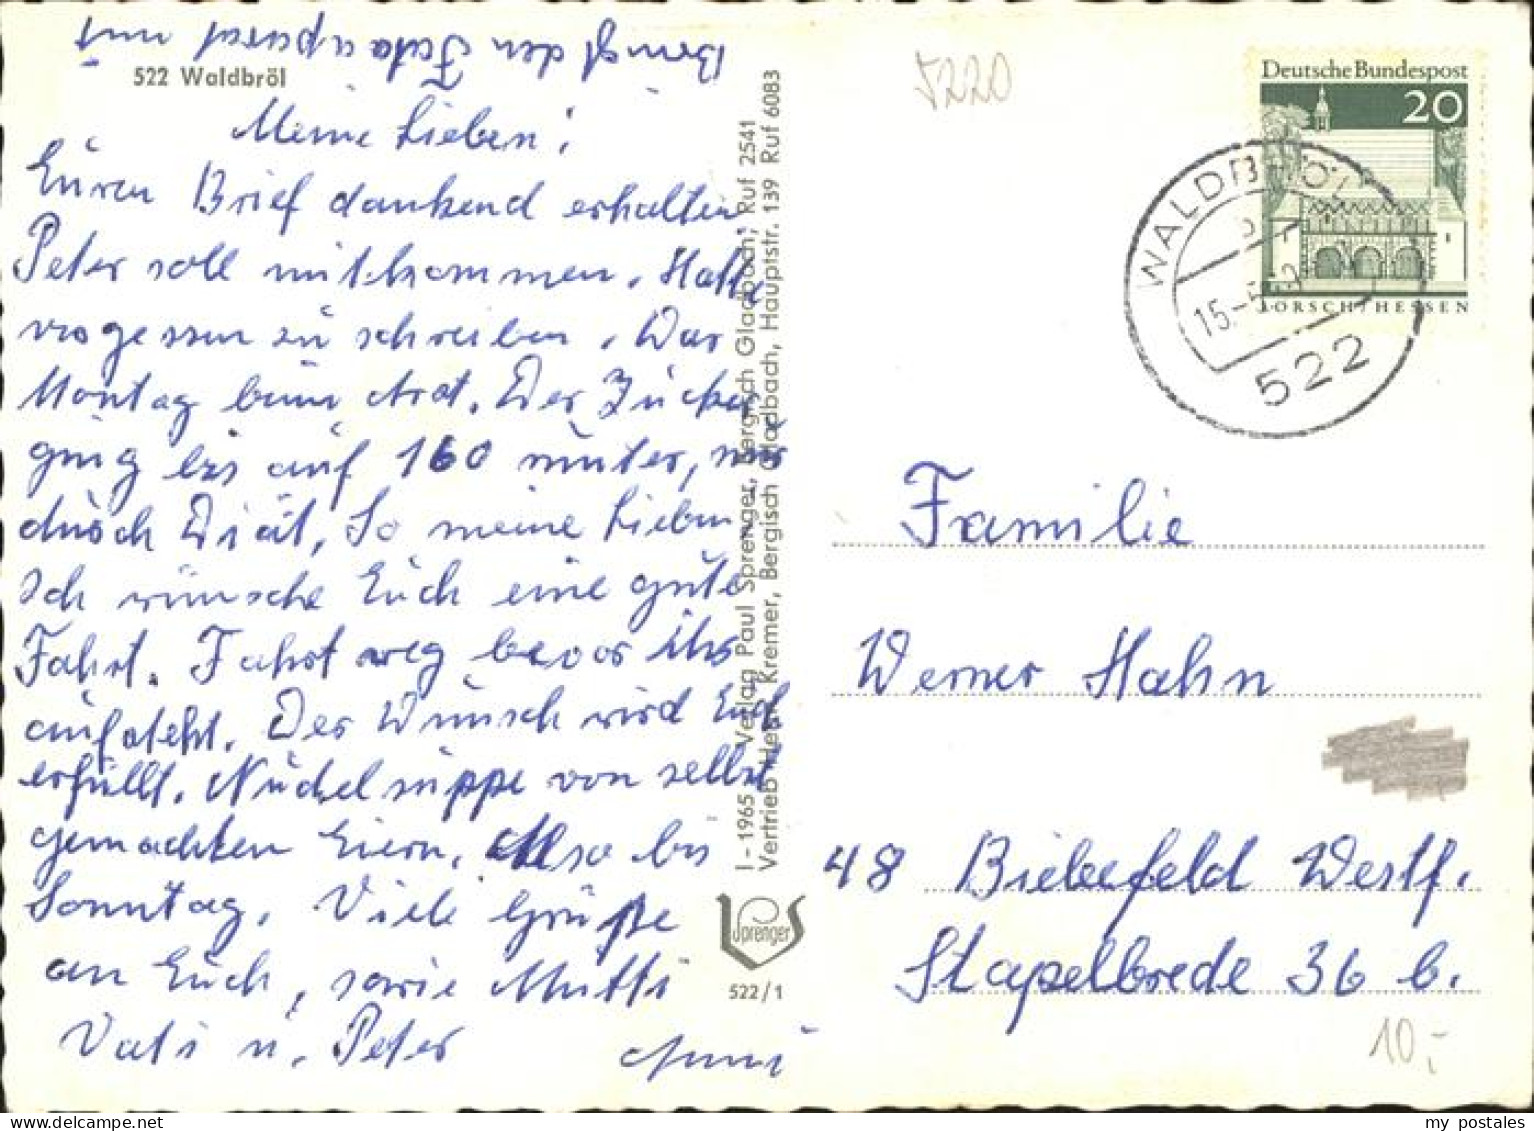 Bringt den Fotoapparat mit
522 Waldbröl
Meine Lieben!
Euren Brief dankend erhalten
Peter soll mitkommen. Hatte
vergessen zu schreiben. War
Montag beim Arzt. Der Zucker
ging bis auf 160 runter, nur
durch Diät. So meine Lieben
Ich wünsche Euch eine gute
Fahrt. Fahrt weg bevor ihr
aufsteht. Der Wunsch wird Euch
erfüllt. Nudelsuppe von selbst
gemachten Eiern. Also bis
Sonntag. Viele Grüße
an Euch, sowie Mutti
Vati u. Peter
I-1965 Verlag Paul Sprenger, Bergisch Gladbach, Ruf 2541
Vertrieb Kremer, Bergisch Gladbach, Hauptstr. 139 Ruf 6083
Sprenger
522/1
5220
Deutsche Bundespost
20
LORSCH/HESSEN
WALDBRÖL
15.-
522
Familie
Werner Hahn
48 Bielefeld Westf.
Stapelbrede 36 b.
10,-
my postales